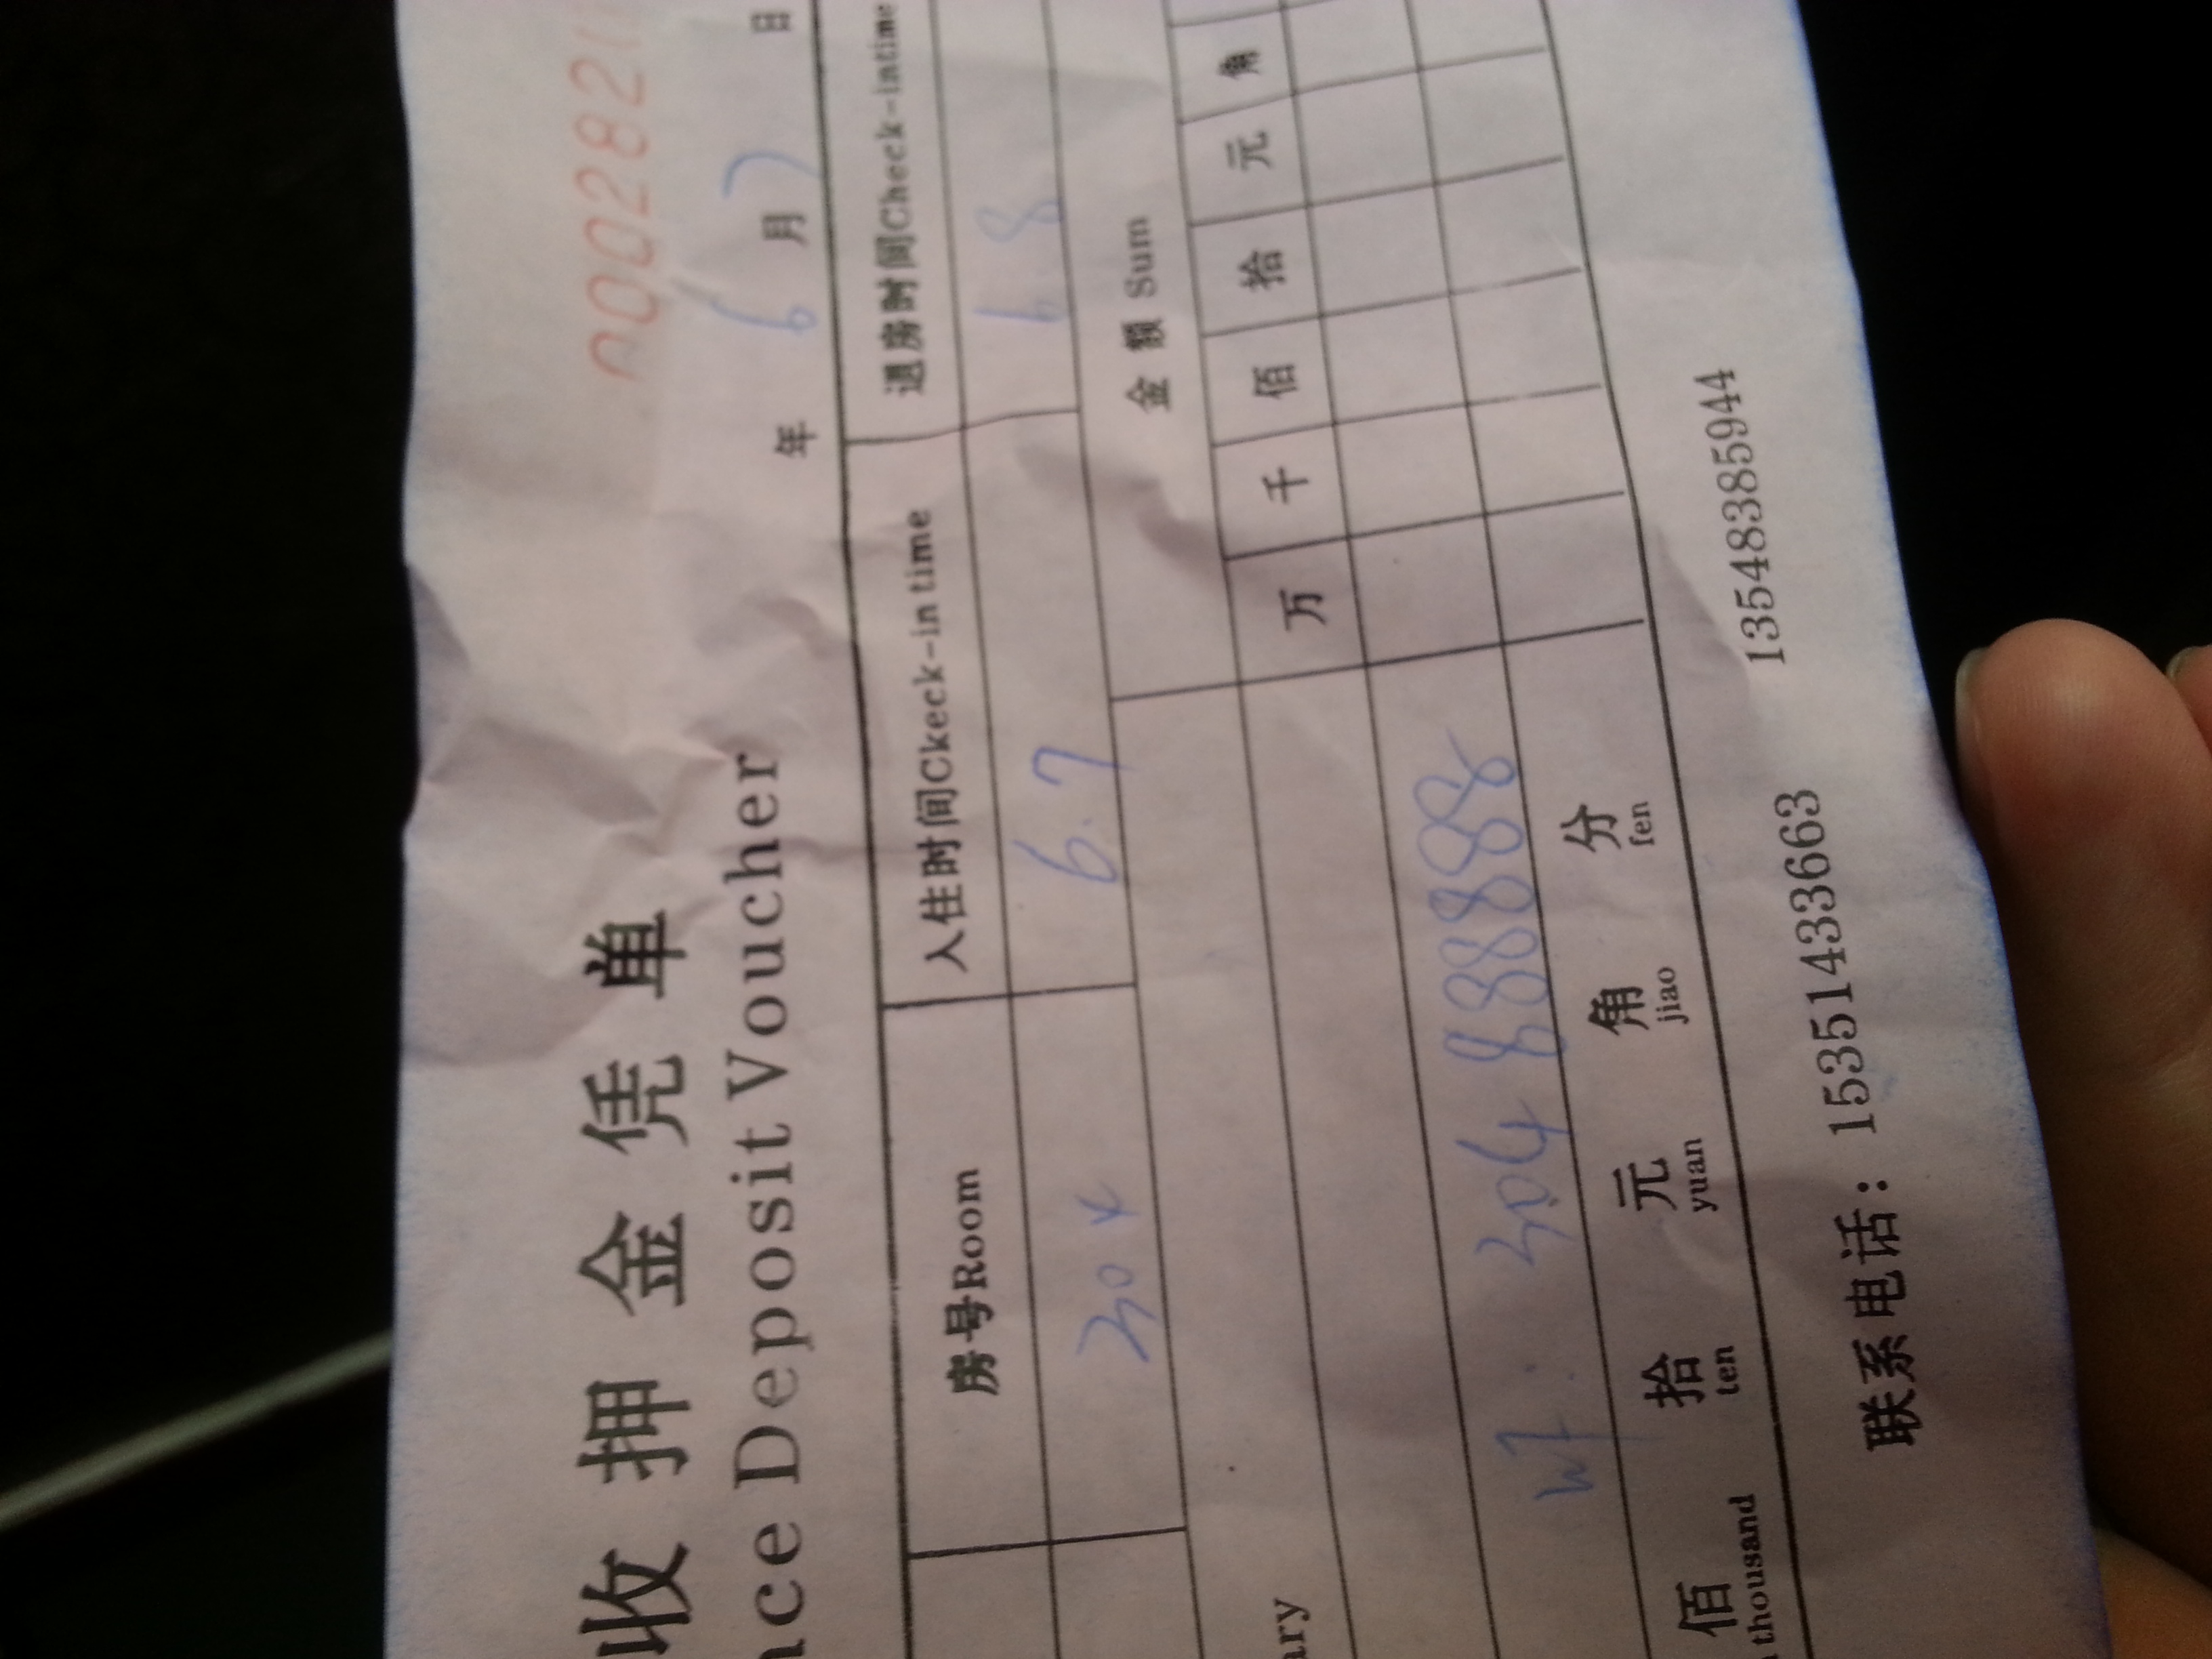 收押金凭单
0002821
nce Deposit Voucher
年 6 月 7 日
房号Room 入住时间Ckeck-in time 退房时间Check-intime
304 6.7 6.8
金额 Sum
ary 万 千 佰 拾 元 角
wf: 304 888888
佰 拾 元 角 分
thousand ten yuan jiao fen
联系电话：15351433663 13548385944